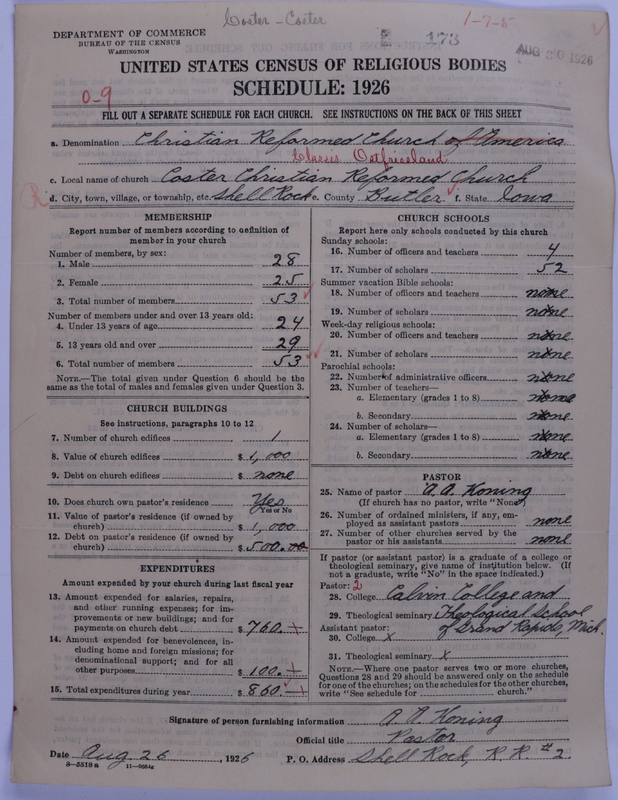 Coster - Coster
1-7-5
DEPARTMENT OF COMMERCE
BUREAU OF THE CENSUS
WASHINGTON
173
AUG 30 1926
UNITED STATES CENSUS OF RELIGIOUS BODIES
SCHEDULE: 1926
0-9
FILL OUT A SEPARATE SCHEDULE FOR EACH CHURCH. SEE INSTRUCTIONS ON THE BACK OF THIS SHEET
a. Denomination Christian Reformed Church of America
Classis Ostfriesland
c. Local name of church Coster Christian Reformed Church
d. City, town, village, or township, etc. Shell Rock e. County Butler f. State Iowa
MEMBERSHIP
Report number of members according to definition of
member in your church
Number of members, by sex:
1. Male 28
2. Female 25
3. Total number of members 53
Number of members under and over 13 years old:
4. Under 13 years of age 24
5. 13 years old and over 29
6. Total number of members 53
NOTE.—The total given under Question 6 should be the
same as the total of males and females given under Question 3.
CHURCH BUILDINGS
See instructions, paragraphs 10 to 12
7. Number of church edifices 1
8. Value of church edifices $ 1,000
9. Debt on church edifices $ none
10. Does church own pastor's residence Yes
(Yes or No)
11. Value of pastor's residence (if owned by
church) $ 1,000
12. Debt on pastor's residence (if owned by
church) $ 500.00
EXPENDITURES
Amount expended by your church during last fiscal year
13. Amount expended for salaries, repairs,
and other running expenses; for im-
provements or new buildings; and for
payments on church debt $ 760.
14. Amount expended for benevolences, in-
cluding home and foreign missions; for
denominational support; and for all
other purposes $ 100.
15. Total expenditures during year $ 860.
CHURCH SCHOOLS
Report here only schools conducted by this church
Sunday schools:
16. Number of officers and teachers 4
17. Number of scholars 52
Summer vacation Bible schools:
18. Number of officers and teachers none
19. Number of scholars none
Week-day religious schools:
20. Number of officers and teachers none
21. Number of scholars none
Parochial schools:
22. Number of administrative officers none
23. Number of teachers—
a. Elementary (grades 1 to 8) none
b. Secondary none
24. Number of scholars—
a. Elementary (grades 1 to 8) none
b. Secondary none
PASTOR
25. Name of pastor A. A. Koning
(If church has no pastor, write "None")
26. Number of ordained ministers, if any, em-
ployed as assistant pastors none
27. Number of other churches served by the
pastor or his assistants none
If pastor (or assistant pastor) is a graduate of a college or
theological seminary, give name of institution below. (If
not a graduate, write "No" in the space indicated.)
Pastor: 2
28. College Calvin College and
29. Theological seminary Theological School
Assistant pastor: of Grand Rapids, Mich.
30. College X
31. Theological seminary X
NOTE.—Where one pastor serves two or more churches,
Questions 28 and 29 should be answered only on the schedule
for one of the churches; on the schedules for the other churches,
write "See schedule for church."
Signature of person furnishing information A. A. Koning
Official title Pastor
Date Aug. 26, 1926 P. O. Address Shell Rock, R. R. #2.
8-5518 a